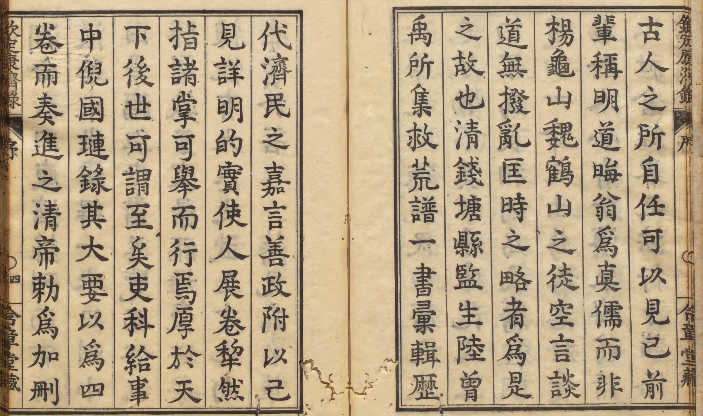 古人之所自任可以見已前
輩稱明道晦翁爲眞儒而非
楊龜山魏鶴山之徒空言談
道無撥亂匡時之略者爲是
之故也清錢塘縣監生陸曾
禹所集救荒譜一書彙輯歷
代濟民之嘉言善政附以己
見詳明的實使人展卷犂然
指諸掌可舉而行焉厚於天
下後世可謂至矣吏科給事
中倪國璉錄其大要以爲四
卷而奏進之清帝勅爲加刪
欽定康濟錄 序 四